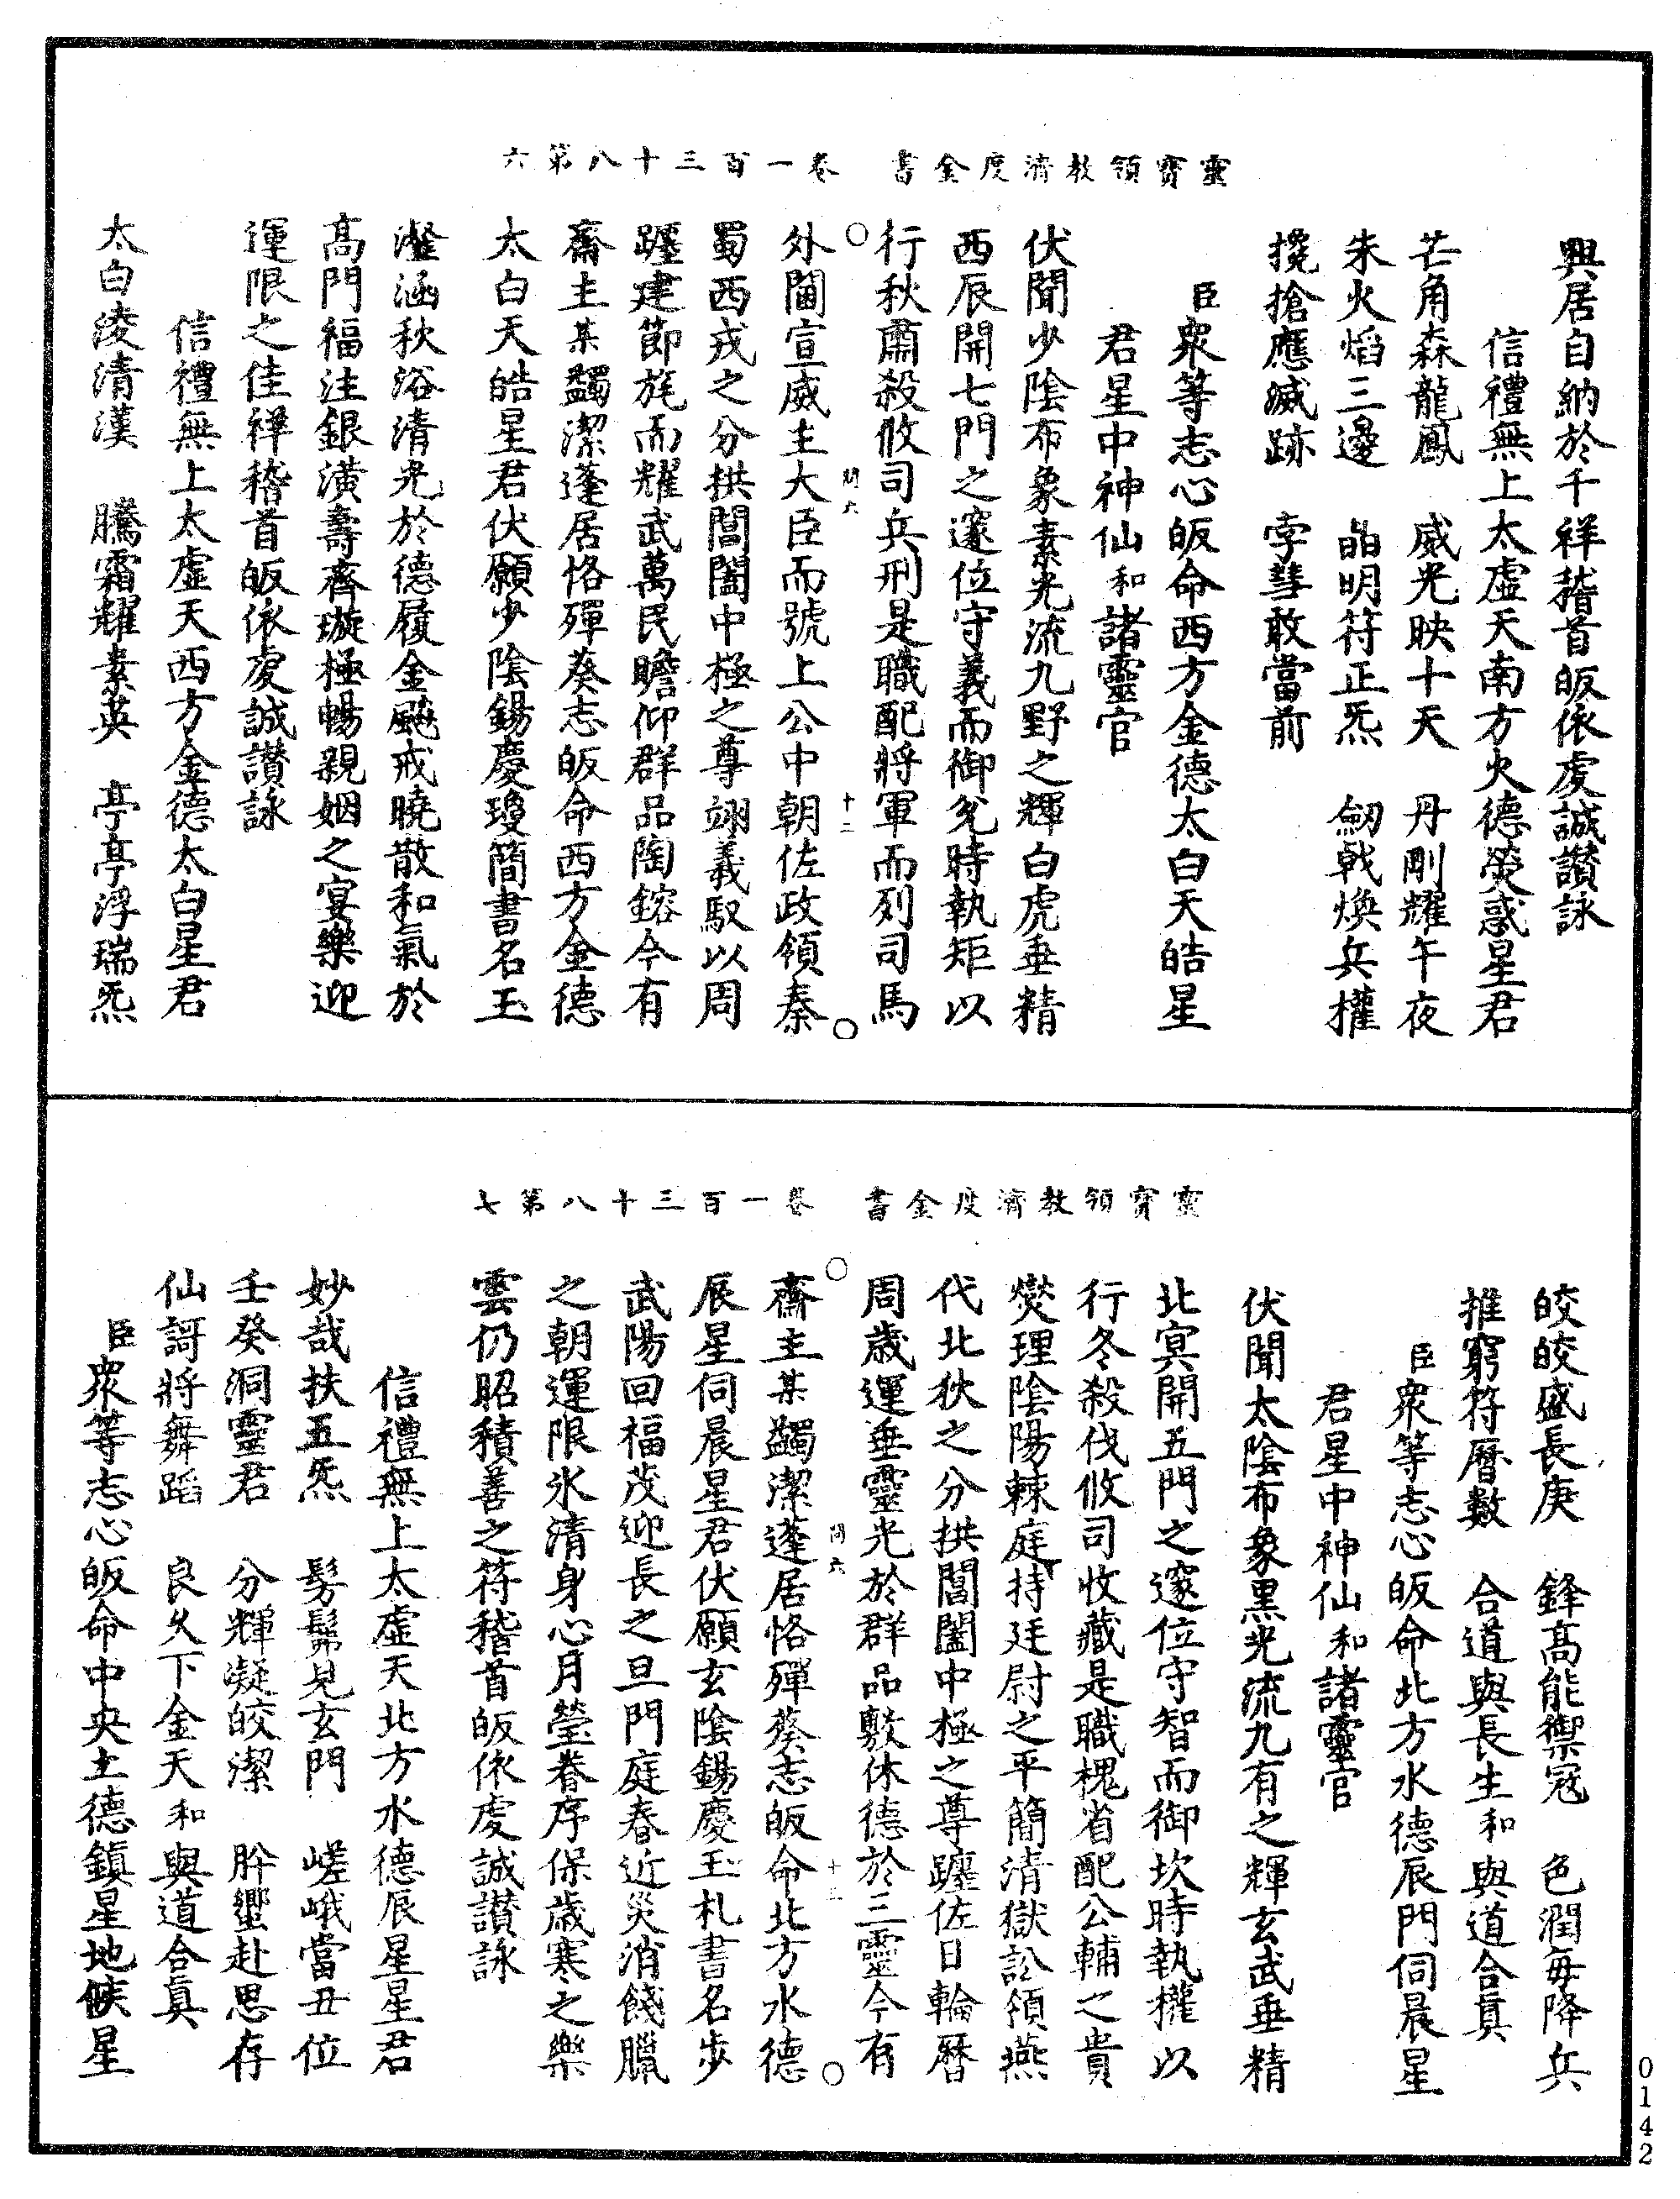 靈寶領教濟度金書　卷一百三十八第六
興居自納於千祥稽首皈依虔誠讚詠
信禮無上太虛天南方火德熒惑星君
芒角森龍鳳　威光映十天　丹剛耀午夜
朱火焰三邊　晶明符正炁　劒戟煥兵權
攙搶應滅跡　孛彗敢當前
臣衆等志心皈命西方金德太白天皓星
君星中神仙和諸靈官
伏聞少陰布象素光流九野之輝白虎垂精
西辰開七門之邃位守義而御兌時執矩以
行秋肅殺攸司兵刑是職配將軍而列司馬
外閫宣威主大臣而號上公中朝佐政領秦
蜀西戎之分拱閶闔中極之尊翊義馭以周
躔建節旄而耀武萬民瞻仰群品陶鎔今有
齋主某蠲潔蓬居恪殫葵志皈命西方金德
太白天皓星君伏願少陰錫慶瓊簡書名玉
瀣涵秋浴清光於德履金飈戒曉散和氣於
高門福注銀潢壽齊璇極暢親姻之宴樂迎
運限之佳祥稽首皈依虔誠讚詠
信禮無上太虛天西方金德太白星君
太白淩清漢　騰霜耀素英　亭亭浮瑞炁
問六　十二
靈寶領教濟度金書　卷一百三十八第七
皎皎盛長庚　鋒高能禦冦　色潤每降兵
推窮符曆數　合道與長生和與道合眞
臣衆等志心皈命北方水德辰門伺晨星
君星中神仙和諸靈官
伏聞太陰布象黑光流九有之輝玄武垂精
北冥開五門之邃位守智而御坎時執權以
行冬殺伐攸司收藏是職槐省配公輔之貴
燮理陰陽棘庭持廷尉之平簡清獄訟領燕
代北狄之分拱閶闔中極之尊躔佐日輪曆
周歲運垂靈光於群品敷休德於三靈今有
齋主某蠲潔蓬居恪殫葵志皈命北方水德
辰星伺晨星君伏願玄陰錫慶玉札書名步
武陽回福茂迎長之旦門庭春近災消餞臘
之朝運限氷清身心月瑩眷序保歲寒之樂
雲仍昭積善之符稽首皈依虔誠讚詠
信禮無上太虛天北方水德辰星星君
妙哉扶五炁　髣髴見玄門　嵯峨當丑位
壬癸洞靈君　分輝凝皎潔　肸蠁赴思存
仙謌將舞蹈　良久下金天和與道合眞
臣衆等志心皈命中央土德鎮星地候星
問六　十三
0142